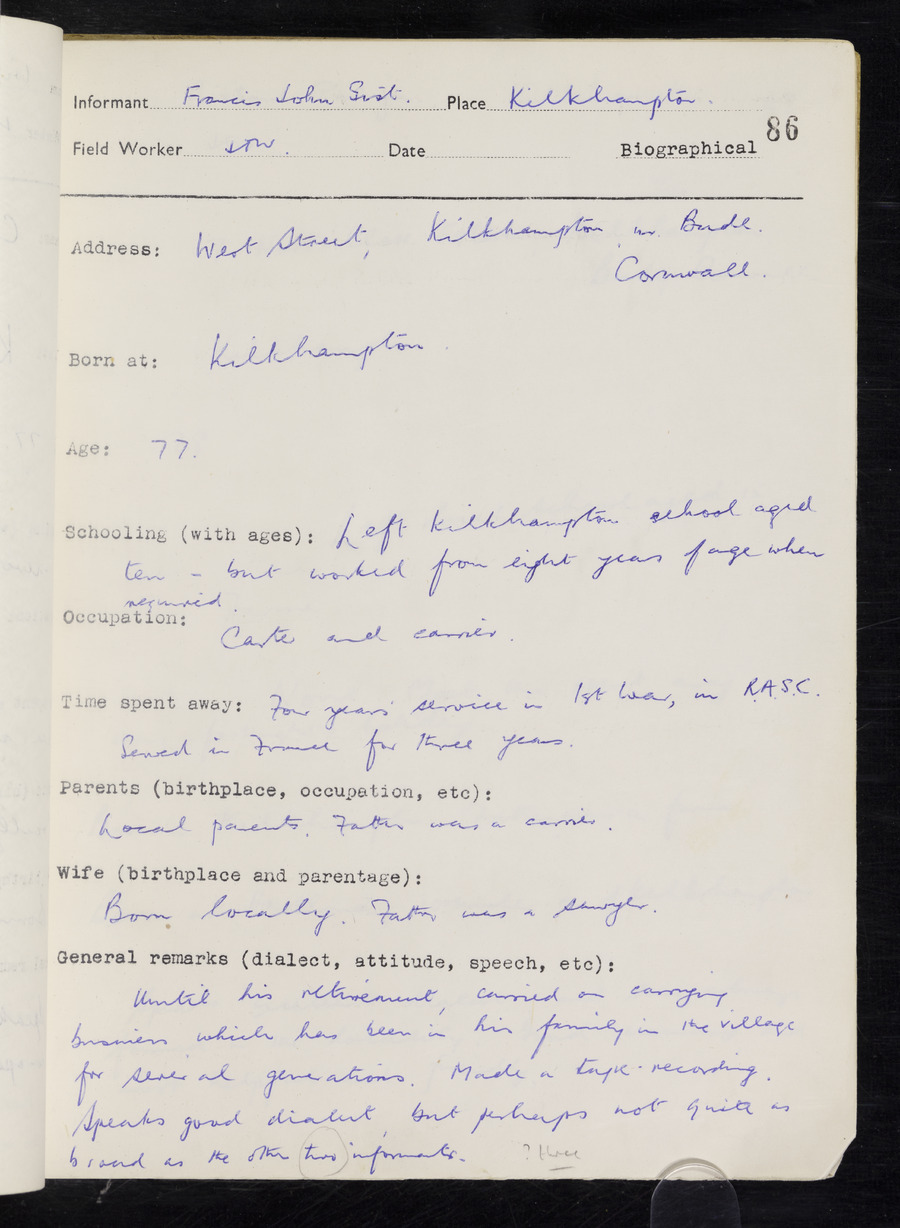 Informant Francis John Place Kilkhampton.
86
Field Worker Date Biographical
Address: West Street, Kilkhampton, nr. Bude.
Cornwall.
Born at: Kilkhampton.
Age: 77.
Schooling (with ages): Left Kilkhampton school aged
ten – but worked from eight years of age when
required.
Occupation:
Carter and carrier.
Time spent away: Four years' service in 1st War, in R.A.S.C.
Served in France for three years.
Parents (birthplace, occupation, etc):
Local parents. Father was a carrier.
Wife (birthplace and parentage):
Born locally. Father was a sawyer.
General remarks (dialect, attitude, speech, etc):
Until his retirement, carried on carrying
business which has been in his family in the village
for several generations. Made a tape-recording.
Speaks good dialect, but perhaps not quite as
broad as the other two informants. ? three